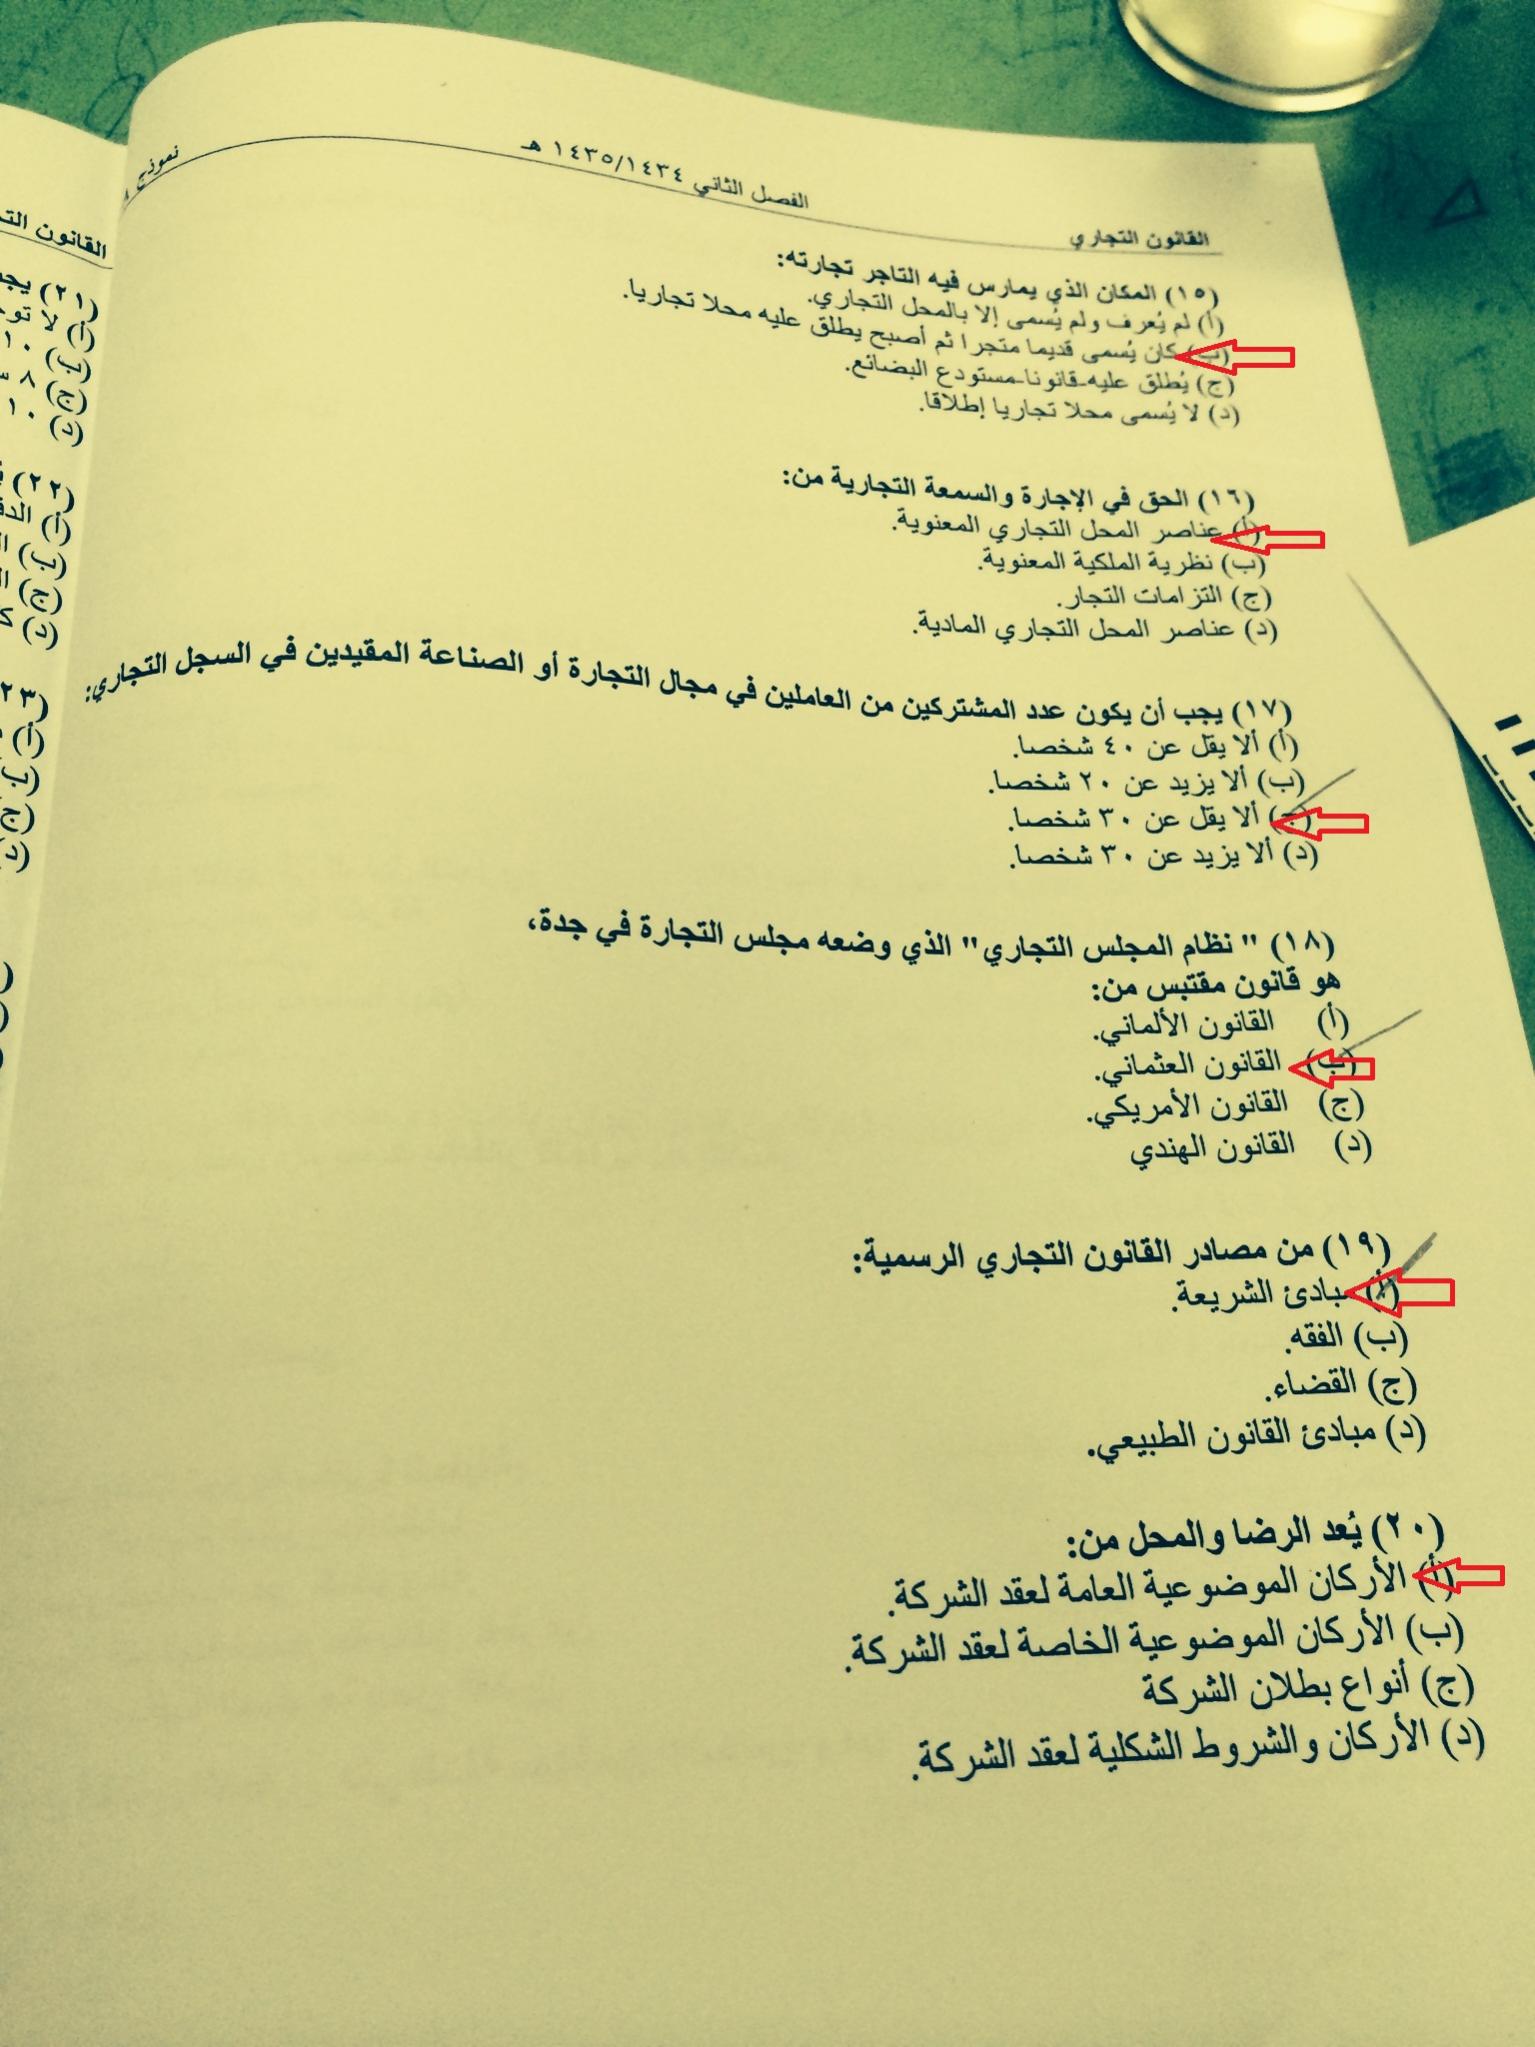 القانون التجاري
الفصل الثاني ١٤٣٥/١٤٣٤ هـ
نموذج
(١٥) المكان الذي يمارس فيه التاجر تجارته:
(أ) لم يُعرف ولم يُسمى إلا بالمحل التجاري.
(ب) كان يُسمى قديما متجرا ثم أصبح يطلق عليه محلا تجاريا.
(ج) يُطلق عليه-قانونا-مستودع البضائع.
(د) لا يُسمى محلا تجاريا إطلاقا.
(١٦) الحق في الإجارة والسمعة التجارية من:
(أ) عناصر المحل التجاري المعنوية.
(ب) نظرية الملكية المعنوية.
(ج) التزامات التجار.
(د) عناصر المحل التجاري المادية.
(١٧) يجب أن يكون عدد المشتركين من العاملين في مجال التجارة أو الصناعة المقيدين في السجل التجاري:
(أ) ألا يقل عن ٤٠ شخصا.
(ب) ألا يزيد عن ٢٠ شخصا.
(ج) ألا يقل عن ٣٠ شخصا.
(د) ألا يزيد عن ٣٠ شخصا.
(١٨) " نظام المجلس التجاري" الذي وضعه مجلس التجارة في جدة،
هو قانون مقتبس من:
(أ) القانون الألماني.
(ب) القانون العثماني.
(ج) القانون الأمريكي.
(د) القانون الهندي
(١٩) من مصادر القانون التجاري الرسمية:
(أ) مبادئ الشريعة.
(ب) الفقه.
(ج) القضاء.
(د) مبادئ القانون الطبيعي.
(٢٠) يُعد الرضا والمحل من:
(أ) الأركان الموضوعية العامة لعقد الشركة.
(ب) الأركان الموضوعية الخاصة لعقد الشركة.
(ج) أنواع بطلان الشركة
(د) الأركان والشروط الشكلية لعقد الشركة.
القانون
(٢١)
(٢٢)